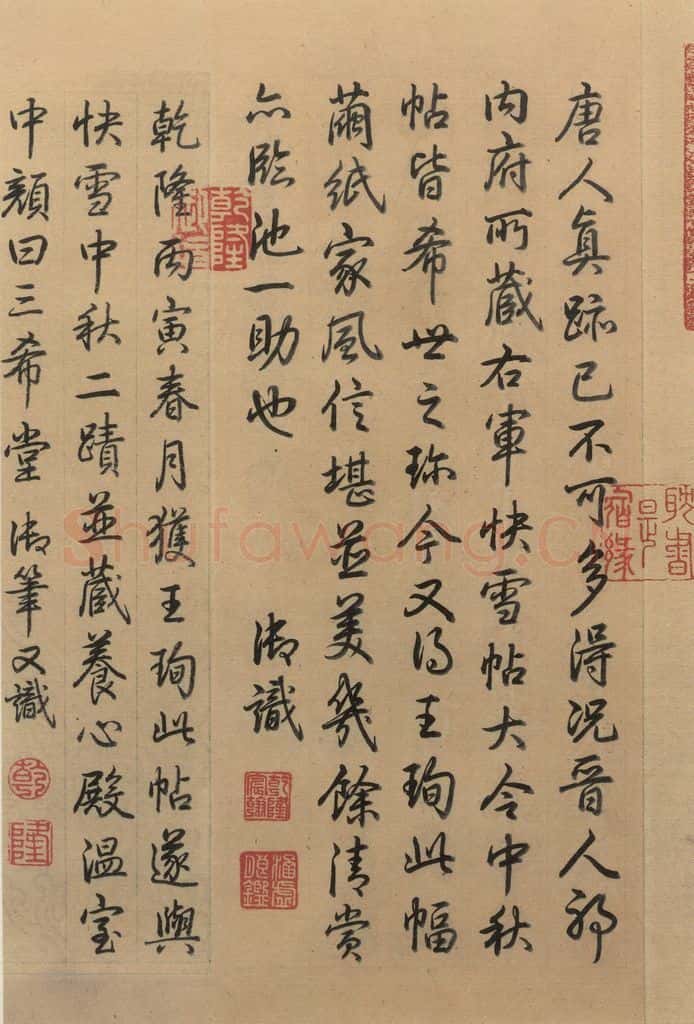 耽書是宿緣
唐人真跡已不可多得况晉人耶
内府所藏右軍快雪帖大令中秋
帖皆希世之珍今又得王珣此幅
繭紙家風信堪並美幾餘清賞
亦臨池一助也 御識
乾隆宸翰
乾隆
乾隆丙寅春月獲王珣此帖遂與
快雪中秋二蹟並藏養心殿温室
中顔曰三希堂 御筆又識
乾
隆
Shufawang.C